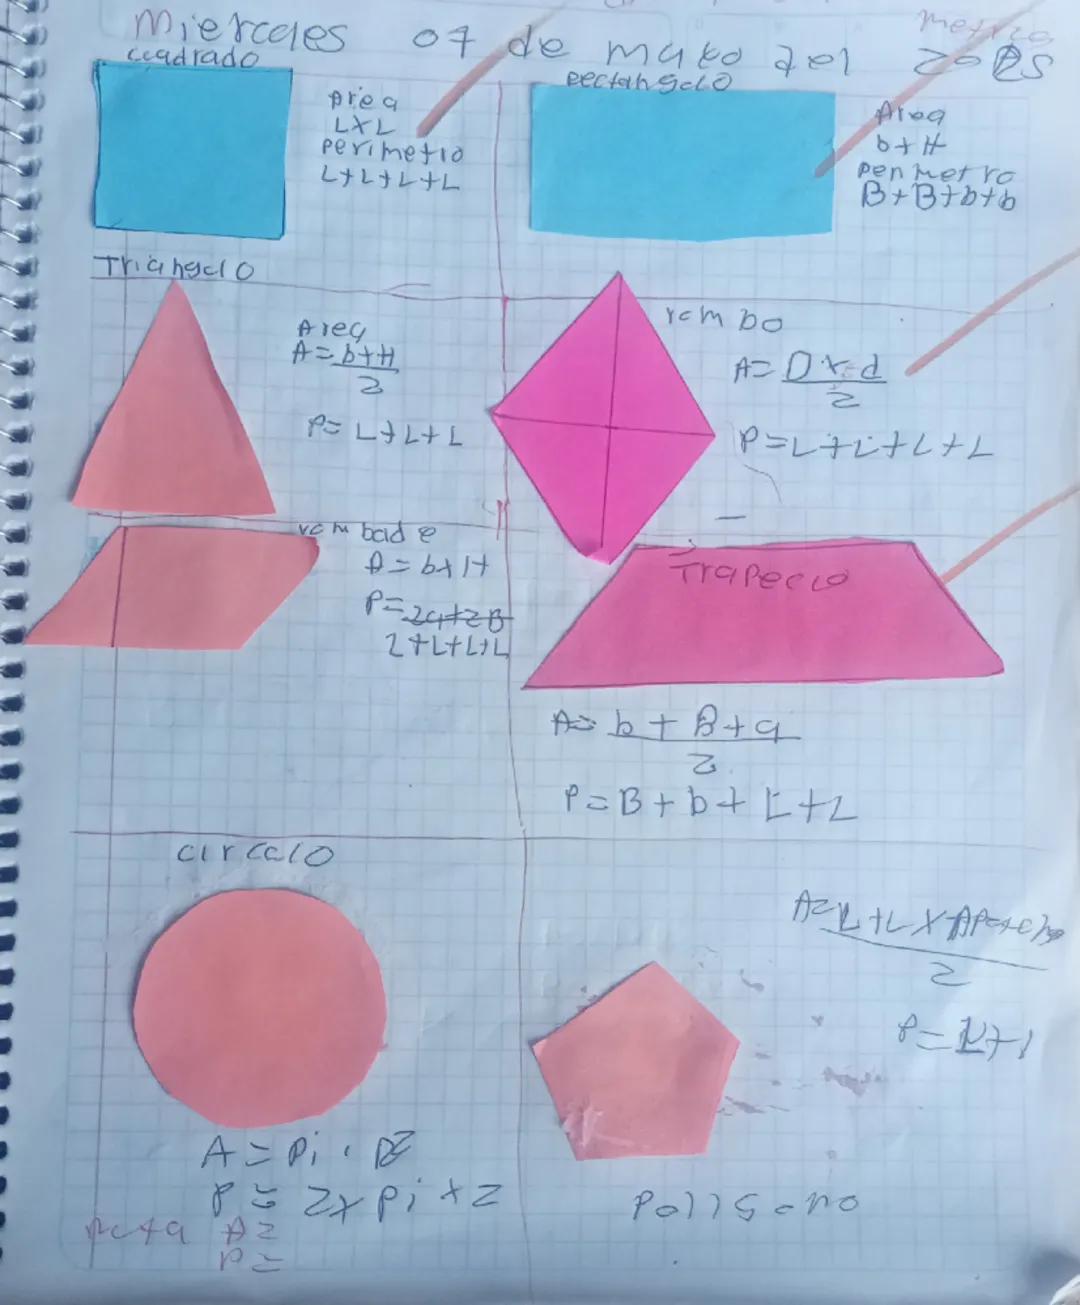 metria
Miercoles 07 de mayo del 2025
cuadrado
Area
LXL
perimetro
L+L+L+L
rectangulo
Area
b+H
perimetro
B+B+b+b
Triangulo
Area
A=b+H
2
P=L+L+L
rombo
A=Dxd
2
P=L+L+L+L
romboide
A=b+H
P=2a+2B
L+L+L+L
Trapecio
A=b+B+a
2
P=B+b+L+L
circulo
A=pi.
P=2xpix2
Nota A=
P=
A=L+LX
2
P=
Poligono